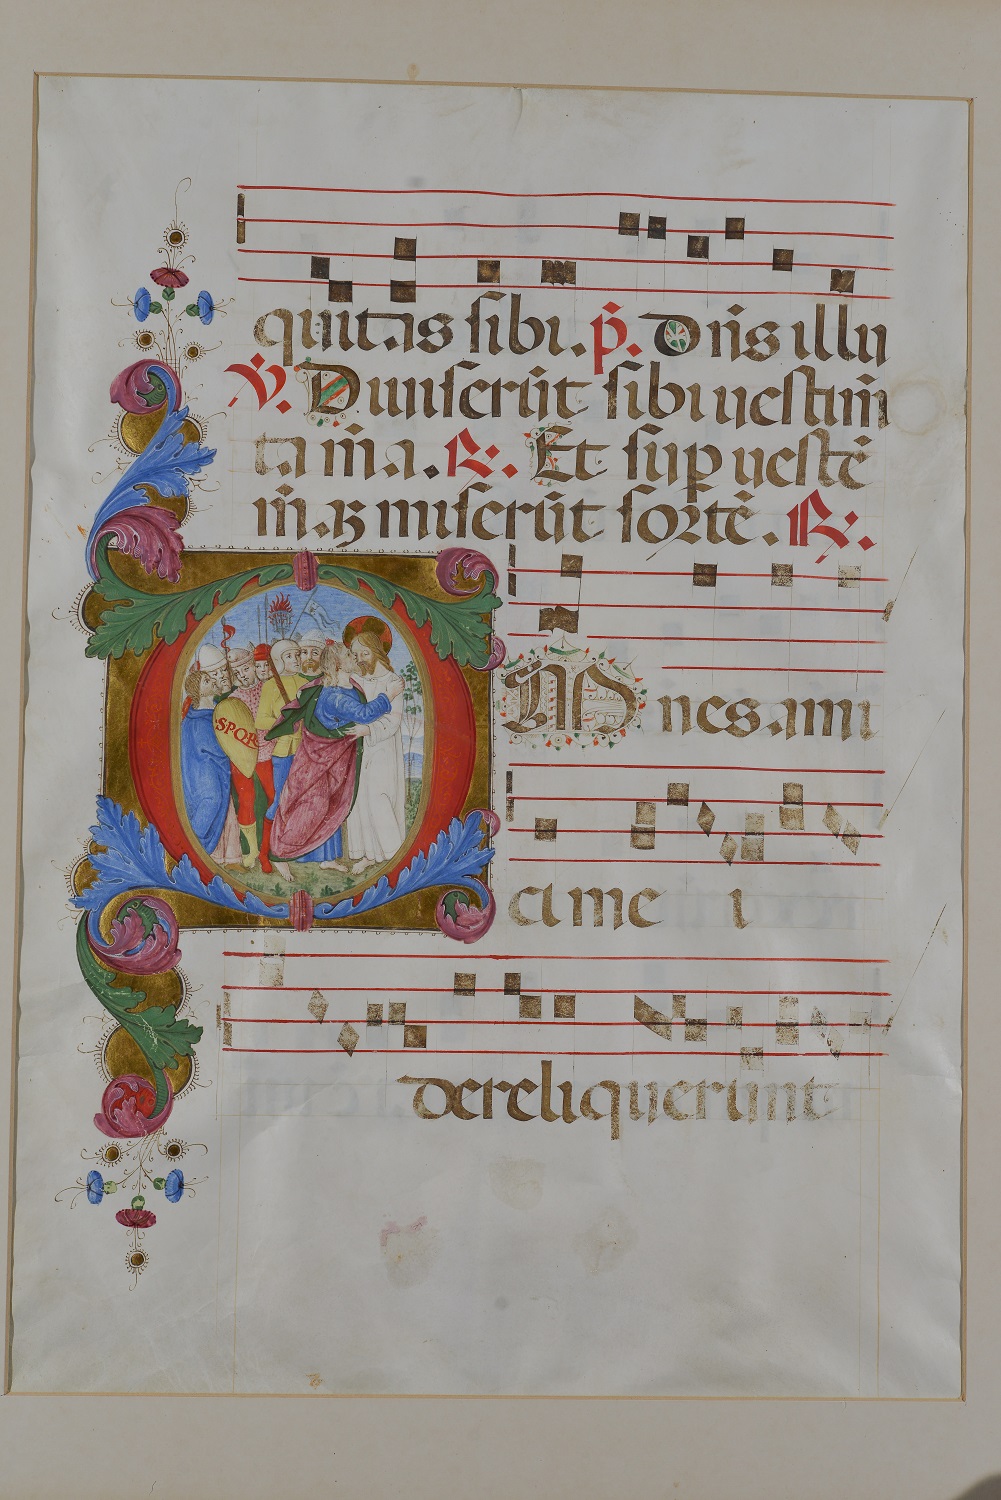 quitas sibi. p̄. Dn̄s illu
V̄. Diuiserūt sibi uestim̄
ta m̄a. R. Et sup uestē
m̄ꝫ miserūt sortē. R.
SPQR
OMnes ami
ci me i
dereliquerunt